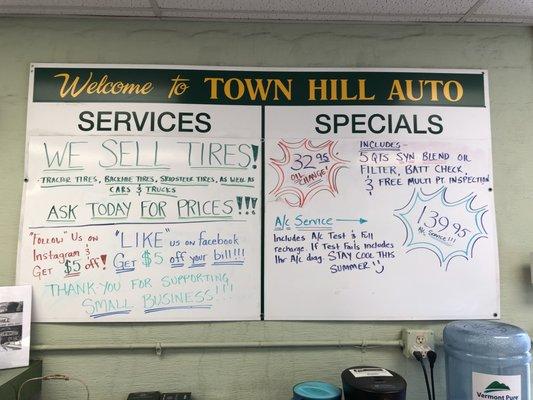 Welcome to TOWN HILL AUTO
SERVICES
WE SELL TIRES!
-TRACTOR TIRES, BACKHOE TIRES, SKIDSTEER TIRES, AS WELL AS
CARS & TRUCKS
ASK TODAY FOR PRICES!!!
"Follow" Us on
Instagram &
Get $5 off!
"LIKE" us on facebook
Get $5 off your bill!!!
THANK YOU FOR SUPPORTING
SMALL BUSINESS!!!
SPECIALS
32.95
OIL
CHANGE!
INCLUDES-
5 QTS SYN BLEND OIL
FILTER, BATT CHECK,
& FREE MULTI PT. INSPECTION
A/C Service
Includes A/C Test & Full
recharge. If Test Fails Includes
1hr A/C diag. STAY COOL THIS
SUMMER
139.95
A/C SERVICE!!!
Vermont Pure